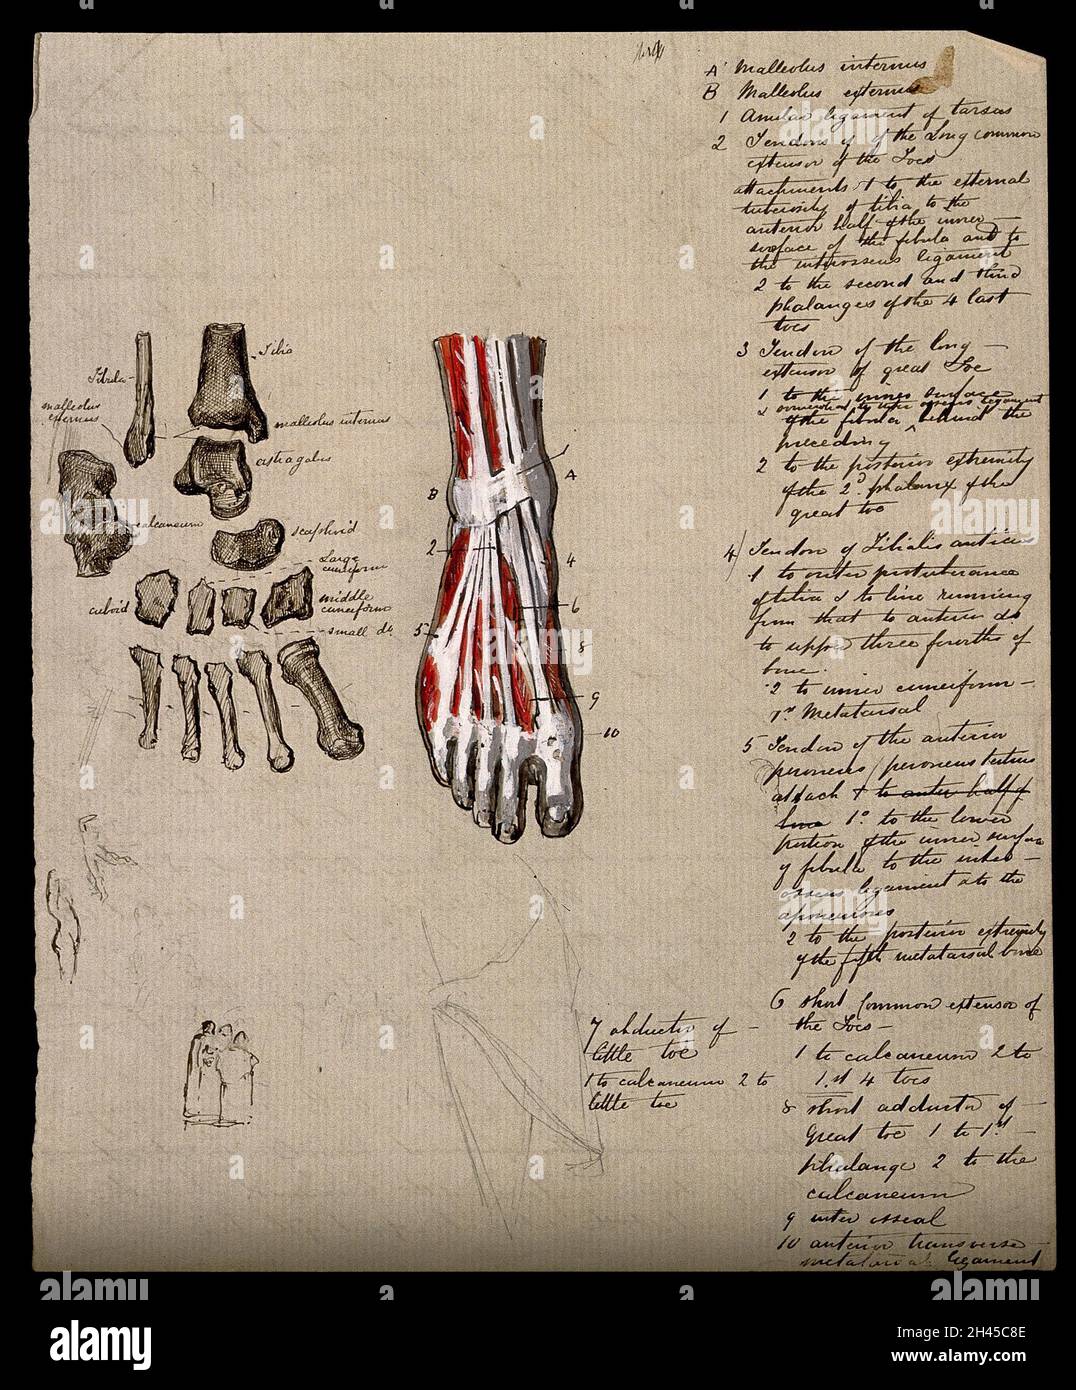 A Malleolus internus
B Malleolus externus
1 Anular ligament of tarsus
2 Tendons of of the Long common
extensor of the Toes
attachments 1 to the external
tuberosity of tibia to the
anterior half of the inner
surface of the fibula and to
the interosseus ligament
2 to the second and third
phalanges of the 4 last
toes
3 Tendon of the long
extensor of great Toe
1 to the inner surface
of the fibula behind the
preceding
2 to the posterior extremity
of the 2d phalanx of the
great toe
4 Tendon of Tibialis anticus
1 to outer protuberance
of tibia & to line running
from that to anterior do
to upper three fourths of
bone.
2 to inner cuneiform
1st Metatarsal
5 Tendon of the anterior
peroneus / peroneus tertius
attach to outer half of
bone 1o to the lower
portion of the inner surface
of fibula to the inter
osseus ligament & to the
aponeurosis
2 to the posterior extremity
of the fifth metatarsal bone
6 short Common extensor of
the Toes
1 to calcaneum 2 to
1st 4 toes
7 abductor of
little toe
1 to calcaneum 2 to
little toe
8 short adductor of
Great toe 1 to 1st
phalange 2 to the
calcaneum
9 inter osseal
10 anterior transverse
metatarsal ligament
Tibia
Fibula
malleolus
externus
malleolus internus
astragalus
calcaneum
scaphoid
Large
cuneiform
cuboid
middle
cuneiform
small do
A
B
2
4
5
6
8
9
10
alamy
Image ID: 2H45C8E
www.alamy.com